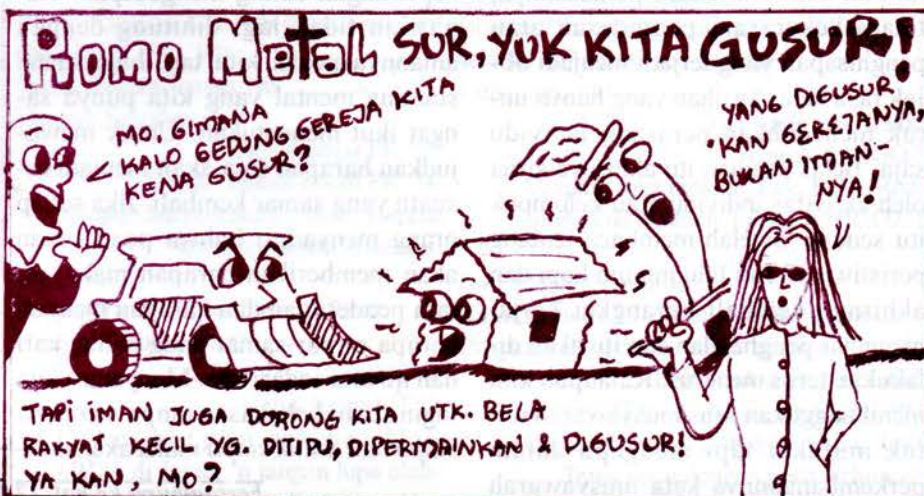 ROMO METAL
SUR, YUK KITA GUSUR!
MO. GIMANA
KALO GEDUNG GEREJA KITA
KENA GUSUR?
YANG DIGUSUR,
'KAN GEREJANYA,
BUKAN IMAN-
NYA!
TAPI IMAN JUGA DORONG KITA UTK. BELA
RAKYAT KECIL YG. DITIPU, DIPERMAINKAN & DIGUSUR!
YA KAN, MO?